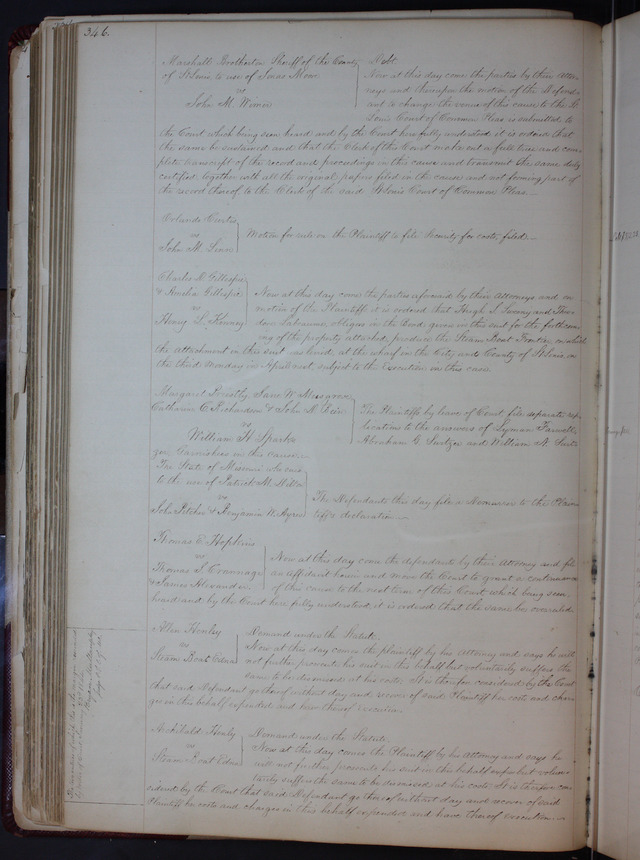 346.
Marshall Brotherton Sheriff of the County Debt.
of St Louis to use of Moore Now at this day come the parties by their attor-
vs neys and thereupon the motion of the Defend-
John M. Wimer ant to change the venue of this cause to the St
Louis Court of Common Pleas is submitted to
the Court which being seen heard and by the Court here fully understood it is ordered that
the same be sustained and that the Clerk of this Court make out a full true and com-
plete transcript of the record and proceedings in this cause and transmit the same duly
certified together with all the original papers filed in the cause and not forming part of
the record thereof to the Clerk of the said St Louis Court of Common Pleas.
Curtis
vs Motion for rule on the Plaintiff to file Security for costs filed.
John M.
Charles D. Gillespie
& Gillespie Now at this day come the parties aforesaid by their Attorneys and on
vs motion of the Plaintiffs it is ordered that Hugh L. Sweeny and Theo-
Henry L. Kinney dore Labeaume, obligors in the Bond given in this suit for the forthcom-
ing of the property attached, produce the Steam Boat on which
the Attachment in this suit was levied, at the wharf in the City and County of St Louis on
the third Monday in April next, subject to the Execution in this case.
Margaret Jane W. Musgrove
Catharine C. Richardson & John D. The Plaintiffs by leave of Court file separate rep-
vs lications to the answers of Lyman Farwell,
William H. Sparks Abraham G. Switzer and William N. Swit-
zer, Garnishees in this cause.
The State of Missouri who sues
to the use of Patrick M. Dillon
vs The Defendants this day file a Demurrer to the Plain-
John Pitcher & Benjamin W. Ayres tiff's declaration.
Thomas E. Hopkins
vs Now at this day come the defendants by their Attorney and file
Thomas J. an affidavit herein and move the Court to grant a continuance
& James Alexander of this cause to the next term of this Court, which being seen
heard and by the Court here fully understood, it is ordered that the same be overruled.
Henley Demand under the Statute.
vs Now at this day comes the plaintiff by his Attorney and says he will
Steam Boat Eden not further prosecute his suit in this behalf but voluntarily suffers the
same to be dismissed at his costs. It is therefore considered by the Court
that said Defendant go thereof without day and recover of said Plaintiff her costs and char-
ges in this behalf expended and have thereof execution.
Archibald Henly Demand under the Statute.
vs Now at this day comes the Plaintiff by his Attorney and says he
Steam Boat Eden will not further prosecute his suit in this behalf but volun-
tarily suffers the same to be dismissed at his costs. It is therefore con-
sidered by the Court that said Defendant go thereof without day and recover of said
Plaintiff her costs and charges in this behalf expended and have thereof execution.